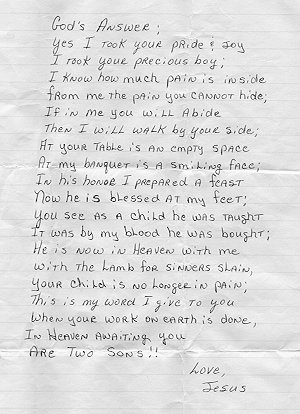 God's Answer;
Yes I took your pride & joy
I took your precious boy;
I know how much pain is inside
from me the pain you cannot hide;
If in me you will Abide
Then I will walk by your side;
At your table is an empty space
At my banquet is a smiling face;
In his honor I prepared a feast
Now he is blessed at my feet;
You see as a child he was taught
It was by my blood he was bought;
He is now in Heaven with me
With the Lamb for sinners slain,
Your child is no longer in pain;
This is my word I give to you
When your work on earth is done,
In Heaven awaiting you
Are two sons!!
Love,
Jesus